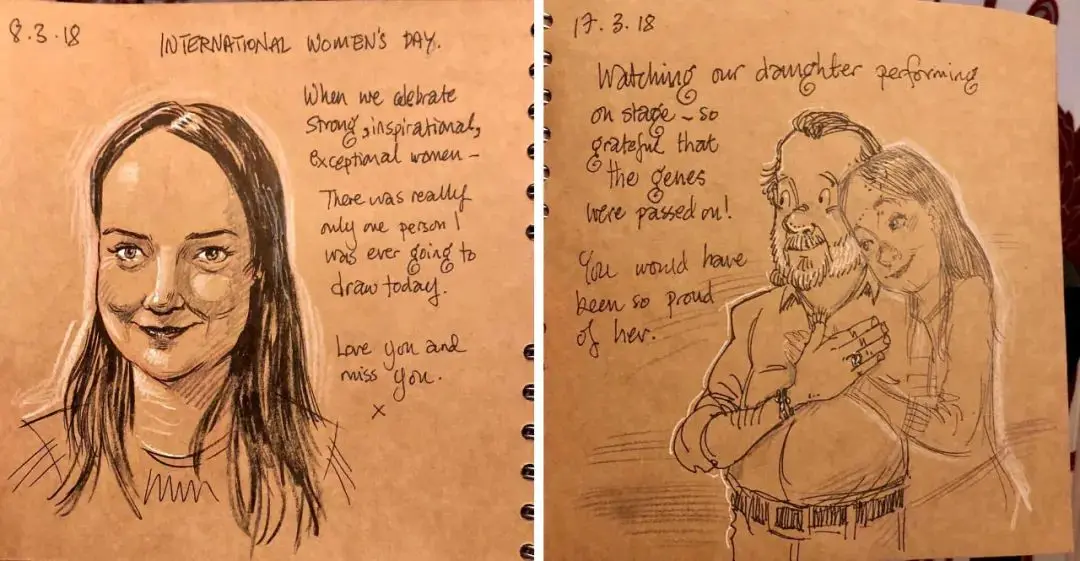 8.3.18
INTERNATIONAL WOMEN'S DAY.
When we celebrate
strong, inspirational,
exceptional women –
There was really
only one person I
was ever going to
draw today.
Love you and
miss you.
x
17.3.18
Watching our daughter performing
on stage – so
grateful that
the genes
were passed on!
You would have
been so proud
of her.